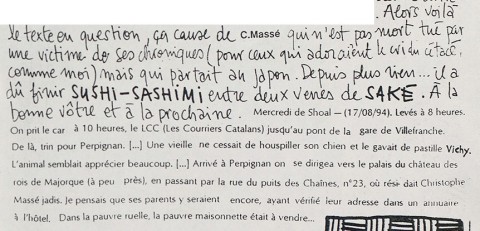 . Alors voilà
le texte en question, ça cause de C.Massé qui n'est pas mort tué par
une victime de ses chroniques (pour ceux qui adoraient le cri du cétacé,
comme moi) mais qui partait au Japon. Depuis plus rien... il a
dû finir SUSHI-SASHIMI entre deux verres de SAKÉ. À la
bonne vôtre et à la prochaine. Mercredi de Shoal — (17/08/94). Levés à 8 heures.
On prit le car à 10 heures, le LCC (Les Courriers Catalans) jusqu'au pont de la gare de Villefranche.
De là, trin pour Perpignan. [...] Une vieille ne cessait de houspiller son chien et le gavait de pastille Vichy.
L'animal semblait apprécier beaucoup. [...] Arrivé à Perpignan on se dirigea vers le palais du château des
rois de Majorque (à peu près), en passant par la rue du puits des Chaînes, n°23, où rési dait Christophe
Massé jadis. Je pensais que ses parents y seraient encore, ayant vérifié leur adresse dans un annuaire
à l'hôtel. Dans la pauvre ruelle, la pauvre maisonnette était à vendre...